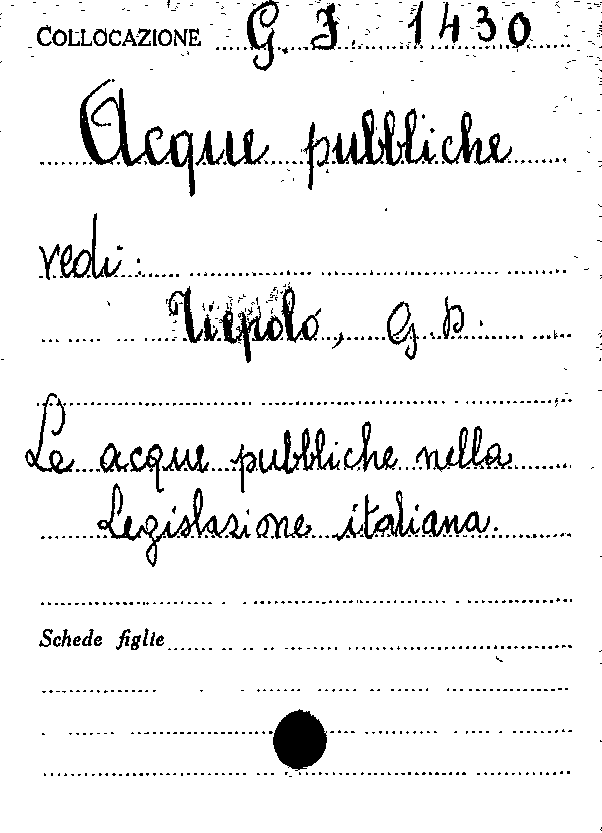 COLLOCAZIONE G. I. 1430
Acque pubbliche
vedi:
Tiepolo, G. D.
Le acque pubbliche nella
Legislazione italiana.
Schede figlie